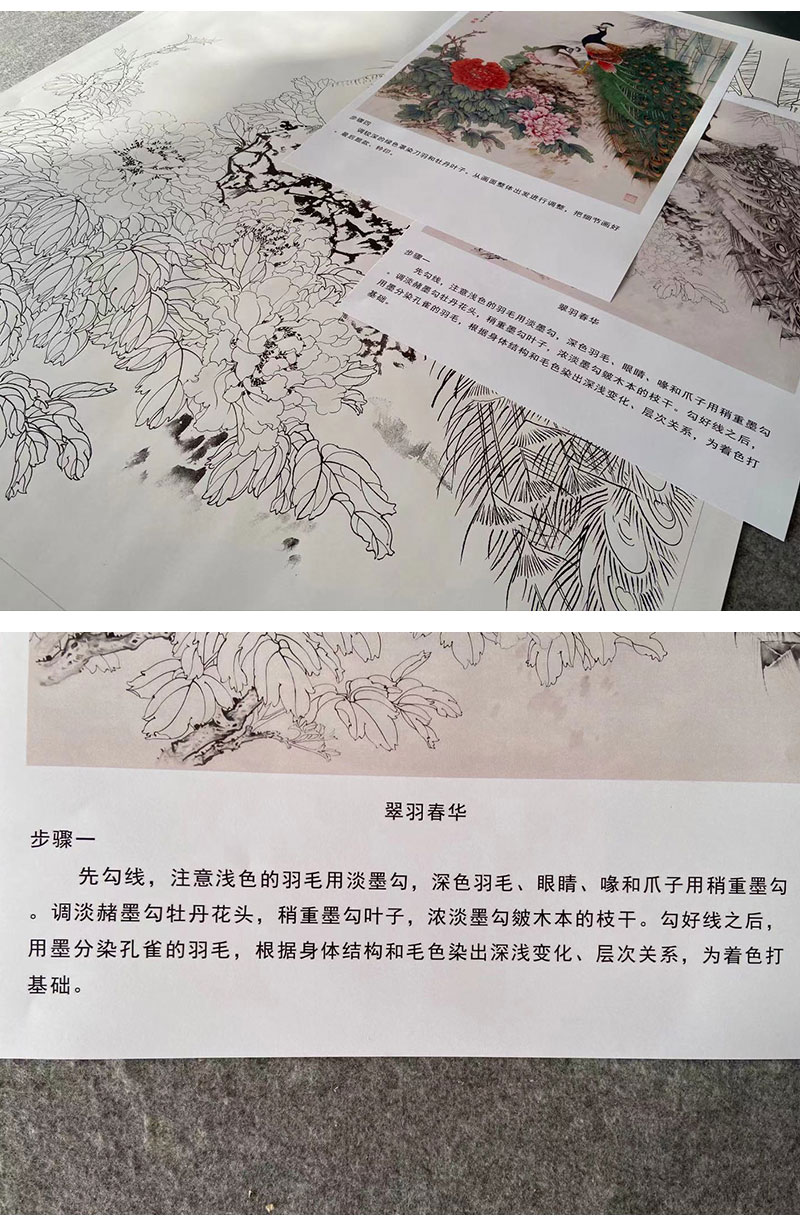 步骤四
调较深的绿色罩染刀羽和牡丹叶子,从画面整体出发进行调整,把细节画好
,最后题款、钤印。
翠羽春华
步骤一
先勾线,注意浅色的羽毛用淡墨勾,深色羽毛、眼睛、喙和爪子用稍重墨勾
。调淡赭墨勾牡丹花头,稍重墨勾叶子,浓淡墨勾皴木本的枝干。勾好线之后,
用墨分染孔雀的羽毛,根据身体结构和毛色染出深浅变化、层次关系,为着色打
基础。
翠羽春华
步骤一
先勾线,注意浅色的羽毛用淡墨勾,深色羽毛、眼睛、喙和爪子用稍重墨勾
。调淡赭墨勾牡丹花头,稍重墨勾叶子,浓淡墨勾皴木本的枝干。勾好线之后,
用墨分染孔雀的羽毛,根据身体结构和毛色染出深浅变化、层次关系,为着色打
基础。